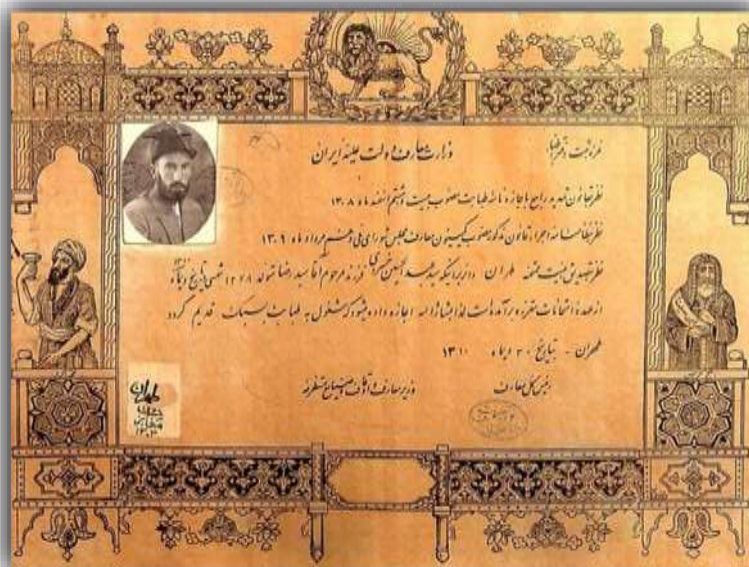 نمره ثبت دفتر اطباء
وزارت معارف دولت علیه ایران
نظر بقانون تمدید راجع باجازه نامه طبابت مصوب بیست و هشتم اسفند ماه ۱۳۰۸
نظر بنظامنامه اجراء قانون مذکور مصوب کمیسیون معارف مجلس شورای ملی هشتم مرداد ماه ۱۳۰۹
نظر بتصدیق هیئت ممتحنه طهران دائر براینکه سید عبدالحسین فرزند مرحوم آقا سید رضا متولد ۱۲۶۸ شمسی بتاریخ دیماه
از عهده امتحانات مقرره برآمده است لذا بمشارالیه اجازه داده میشود که مشغول به طبابت بسبک قدیم گردد
طهران - بتاریخ ۳۰ دیماه ۱۳۱۰
رئیس کل معارف
وزیر معارف و اوقاف و صنایع مستظرفه
طهران